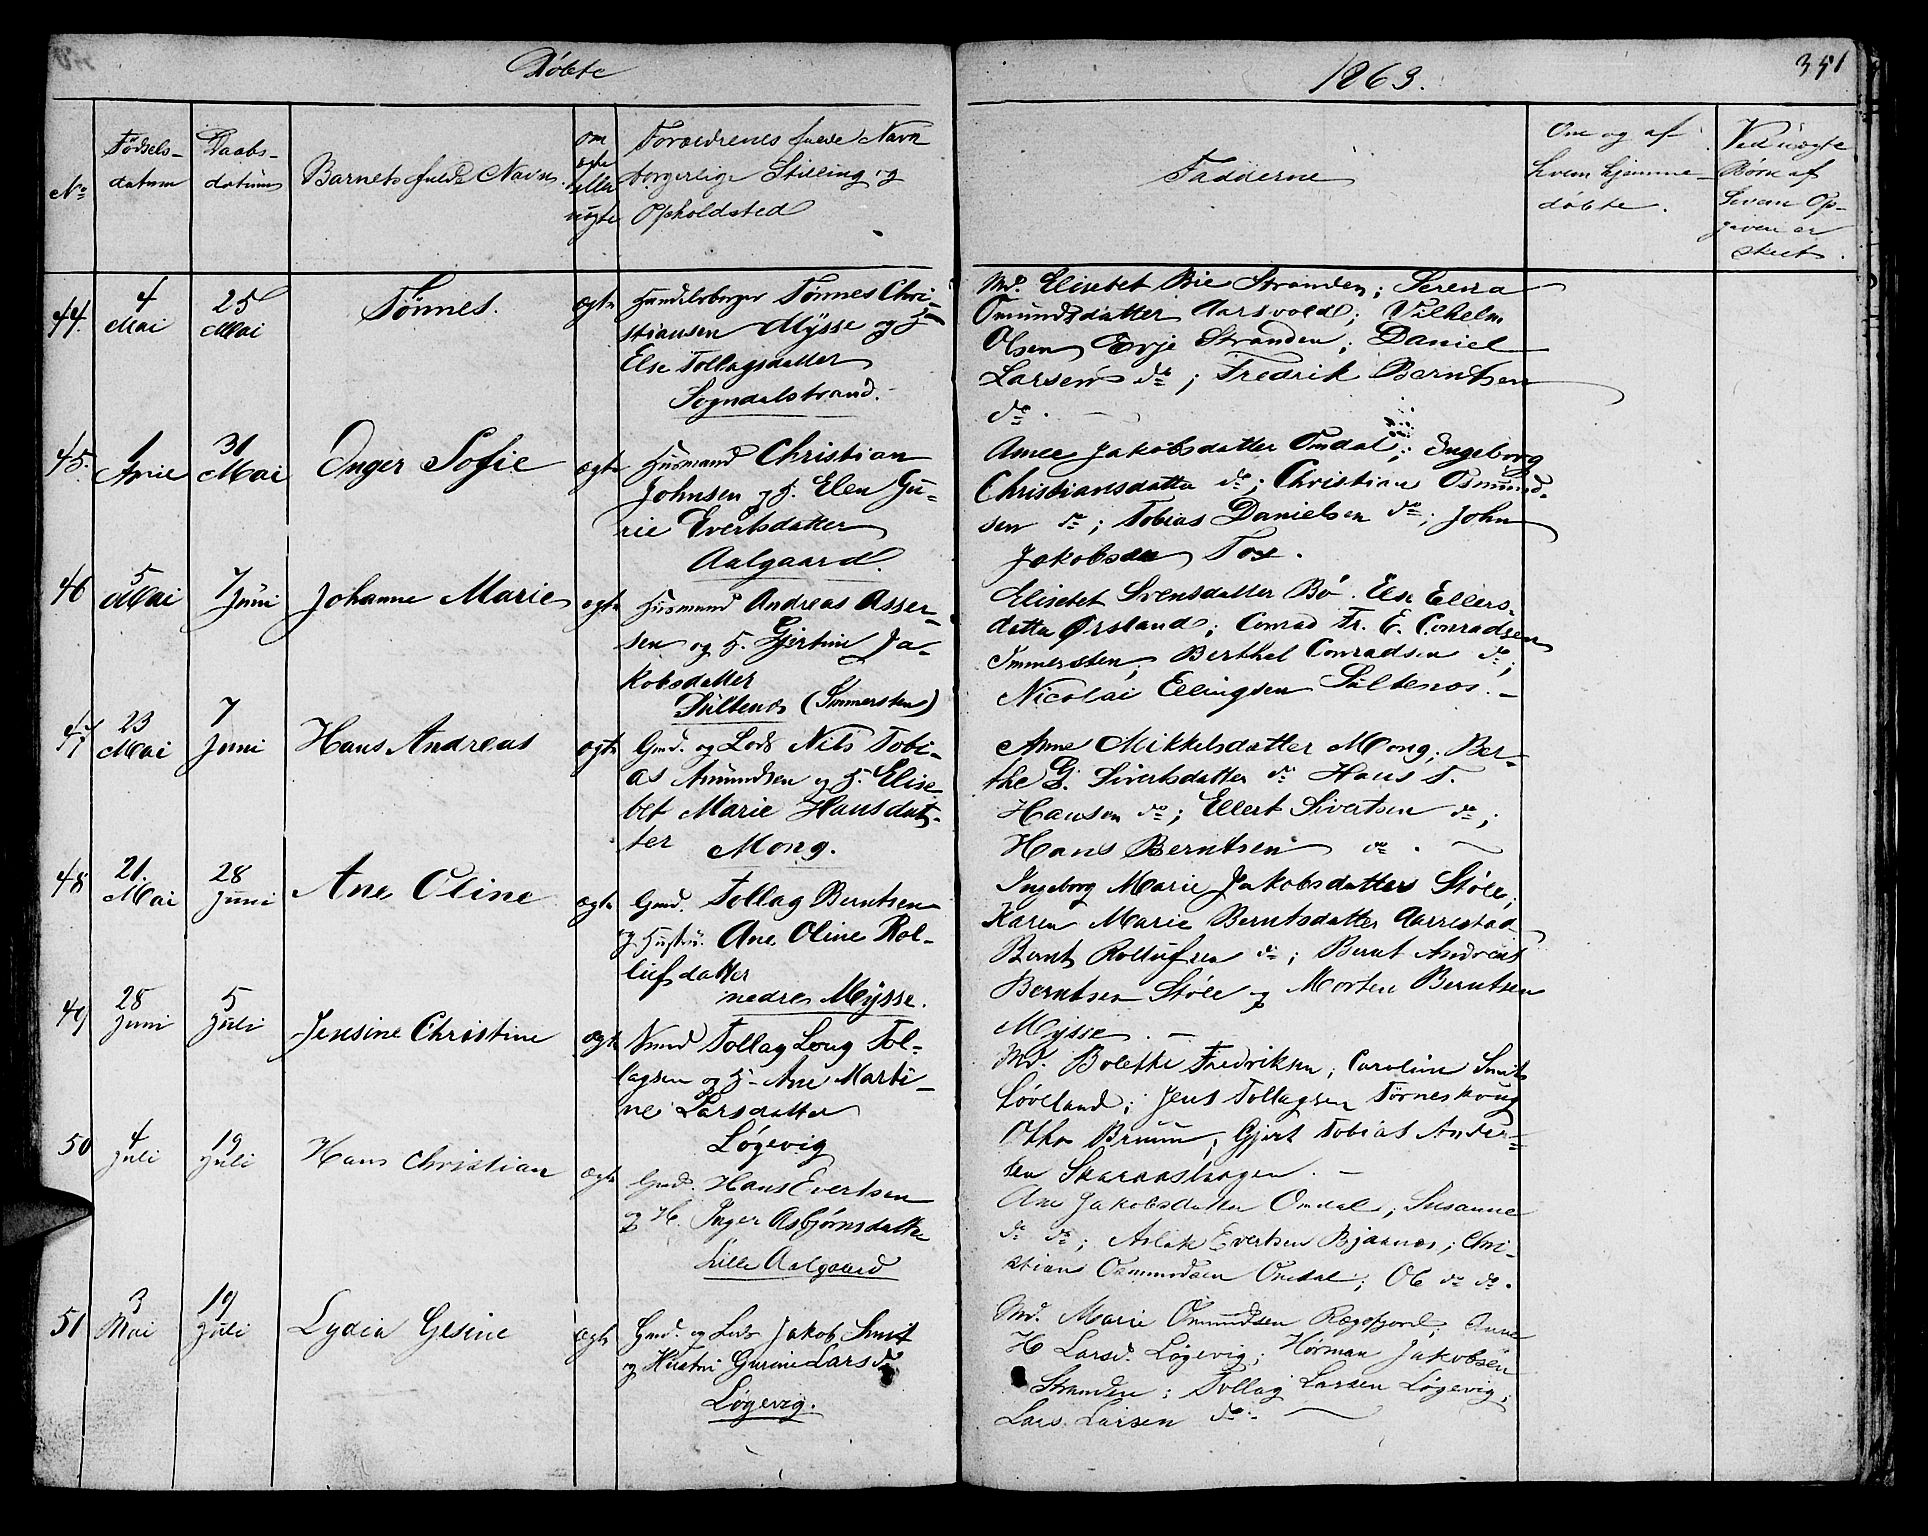 Døbte
1863.
351
No
Fødsels-
datum
Daabs-
datum
Barnets fulde Navn.
om
ægte
eller
uægte
Forældrenes fulde Navn
borgerlige Stilling og
Opholdsted
Fadderne
Om og af
hvem hjemme-
døbte.
Ved uægte
Børn af
hvem Op-
given er
skeet.
44.
4
Mai
25
Mai
Tønnes.
ægte
Handelsborger Tønnes Chri-
stiansen Mysse og H
Else Tollagsdatter
Sogndalstrand.
Md. Elisebet Bie Stranden; Serena
Omundsdatter Aarsvold; Vilhelm
Olsen Evje Stranden; Daniel
Larsen do; Fredrik Berntsen
do.
45.
1
31
Mai
Inger Sofie
ægte
Husmand Christian
Johnsen og H. Elen Gu-
rie Evertsdatter
Aalgaard.
Jakobsdatter Omdal; Ingeborg
Christiansdatter do; Christian Osmund-
sen do; Tobias Danielsen do; John
Jakobsen
46
5
Mai
7
Juni
Johanne Marie
ægte
Husmand Andreas Asser-
sen og H. Gjertine Ja-
kobsdatter
Elisebet Svensdatter Bø. Else Ellers-
datter Ørsland; Conrad Fr. E. Conradsen
Immersten; Berthel Conradsen do;
Nicolai Ellingsen
47
23
Mai
7
Juni
Hans Andreas
ægte
Gmd. og Lods Nils Tobi-
as Amundsen og H. Elise-
bet Marie Hansdat-
ter Mong.
Anne Mikkelsdatter Mong; Ber-
the G. Sivertsdatter do Hans T.
Hansen do; Ellert Sivertsen do;
Hans Berntsen do.
48
21.
Mai
28
Juni
Ane Oline
ægte
Gmd. Tollag Berntsen
og Hustru. Ane Oline Rol-
lufsdatter
nedre Mysse.
Ingeborg Marie Jakobsdatter Støle;
Karen Marie Berntsdatter Aarrestad
Bernt Rollufsen do; Bernt Andreas
Berntsen Støle og Morten Berntsen
Mysse.
49
28
Juni
5
Juli
Jensine Christine
ægte
Tollag Tol-
lagsen og H. Ane Marti-
ne Larsdatter
Løgevig
Md. Bolette Fredriksen; Caroline Smit
Løveland; Jens Tollagsen Tørneskoug
Otho Bruun; Gjert Tobias Ander-
sen
50
4
Juli
19
Juli
Hans Christian
ægte
Gmd. Hans Evertsen
og H. Inger Asbjørnsdatter
Lille Aalgaard
Ane Jakobsdatter Omdal; Susanne
do do; Aslak Evertsen Bjaanes; Chri-
stian Osmundsen Omdal; Ole do do.
51
3
Mai
19
Juli
Lydia Gesine
ægte
Gmd. og Lods Jakob Smit
og Hustru Gurine Larsd
Løgevig.
Md. Marie Omundsen Rægefjord; Anne
H Larsd. Løgevig; Herman Jakobsen
Stranden; Tollag Larsen Løgevig;
Lars Larsen do.